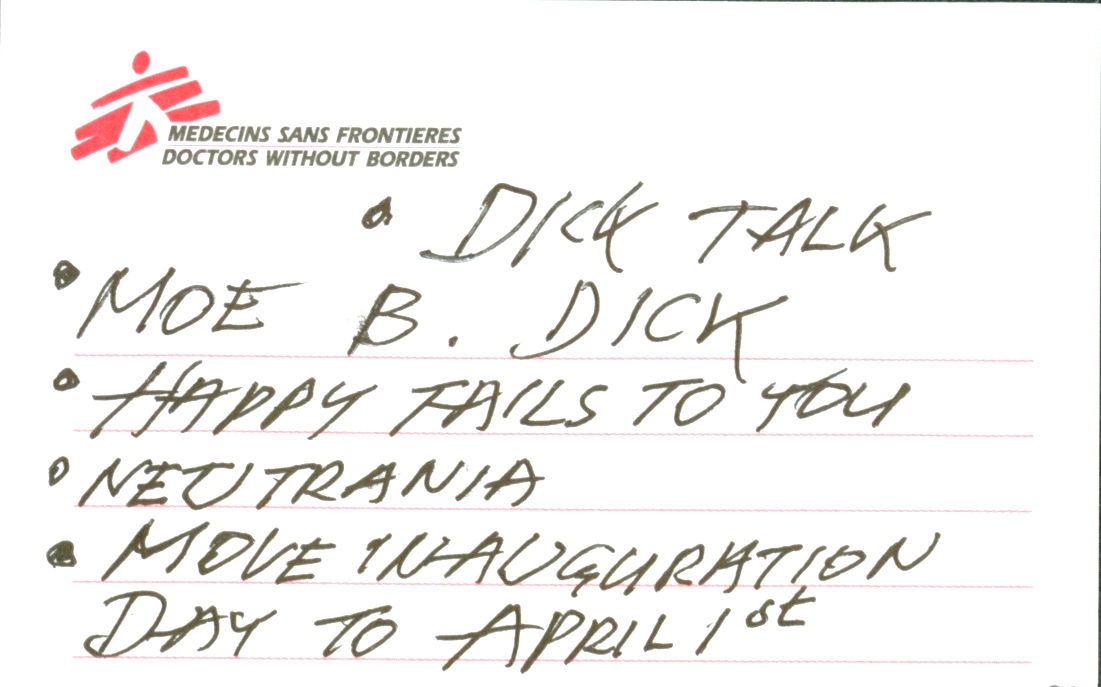 MEDECINS SANS FRONTIERES
DOCTORS WITHOUT BORDERS
• DICK TALK
• MOE B. DICK
• HAPPY TAILS TO YOU
• NEUTRANIA
• MOVE INAUGURATION
DAY TO APRIL 1st